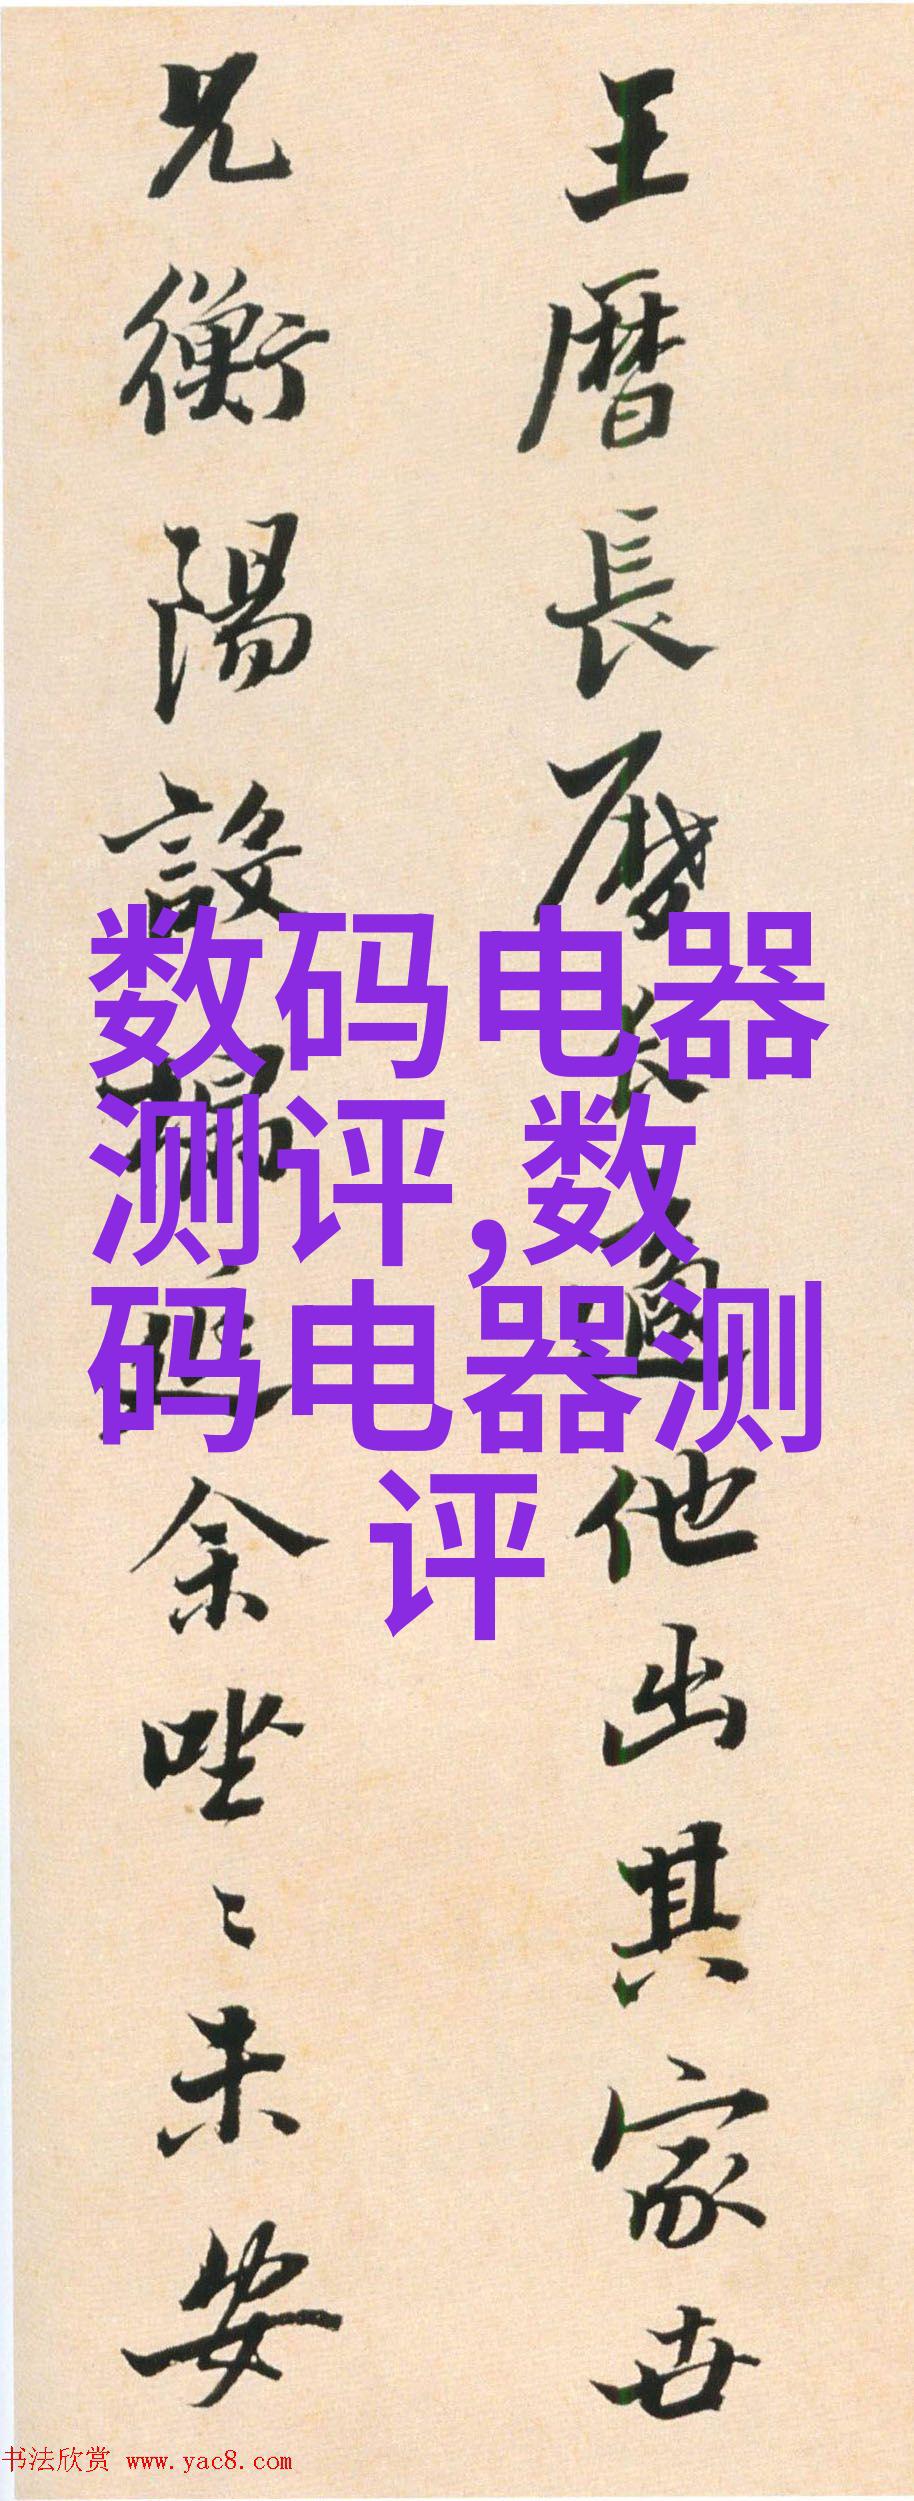 王曆長曆長適他出其家女
兄衡陽設榻延余坐〻未安
数码电器
测评,数
码电器测
评
书法欣赏 www.yac8.com